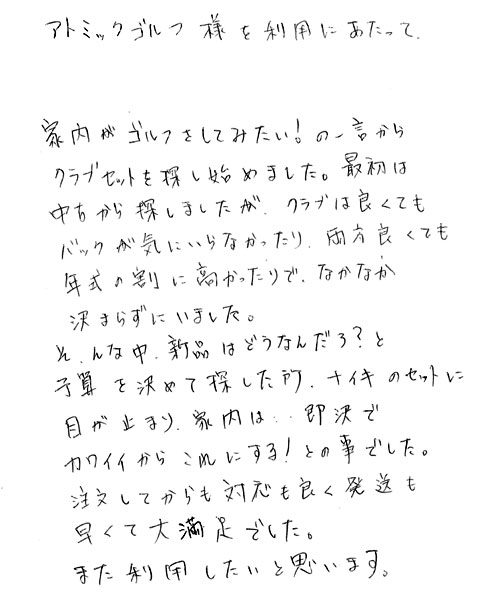 アトミックゴルフ 様を利用にあたって.
家内がゴルフをしてみたい!の一言から
クラブセットを探し始めました。最初は
中古から探しましたが、クラブは良くても
バックが気にいらなかったり、両方良くても
年式の割に高かったりで、なかなか
決まらずにいました。
そ、んな中、新品はどうなんだろ?と
予算を決めて探した所、ナイキのセットに
目が止まり、家内は...即決で
カワイイからこれにする!との事でした。
注文してからも対応も良く発送も
早くて大満足でした。
また利用したいと思います。